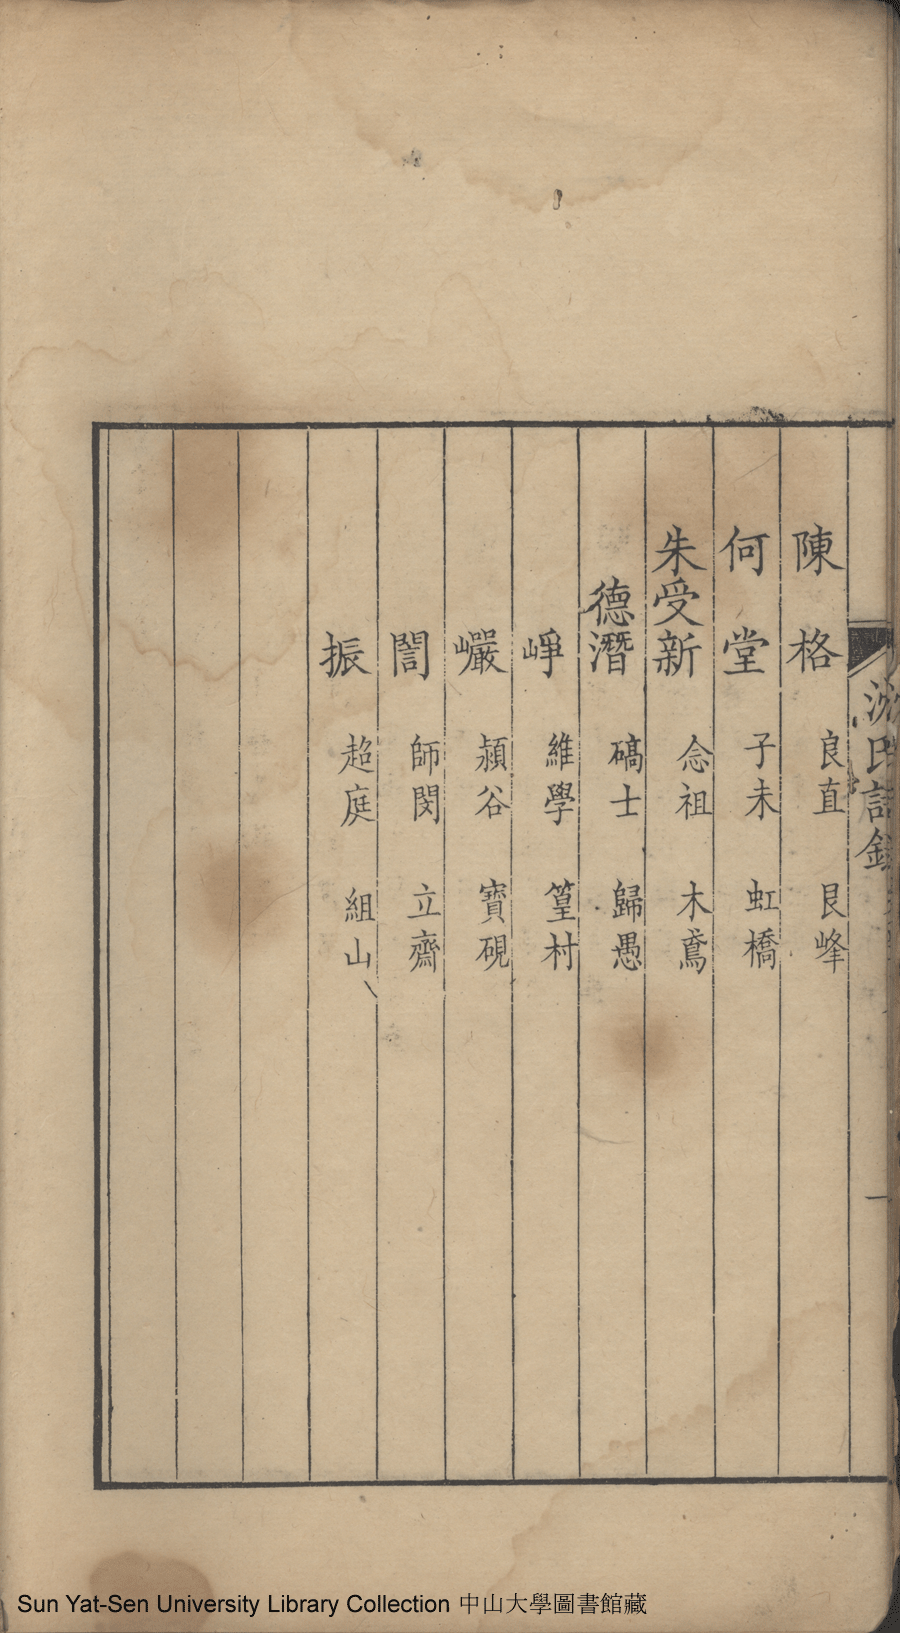 陳格 良直 艮峰
何堂 子未 虹橋
朱受新 念祖 木鳶
德潛 碻士 歸愚
崢 維學 篁村
巗 潁谷 寶硯
誾 師閔 立齋
振 超庭 組山
氏詩錄
一
Sun Yat-Sen University Library Collection 中山大學圖書館藏